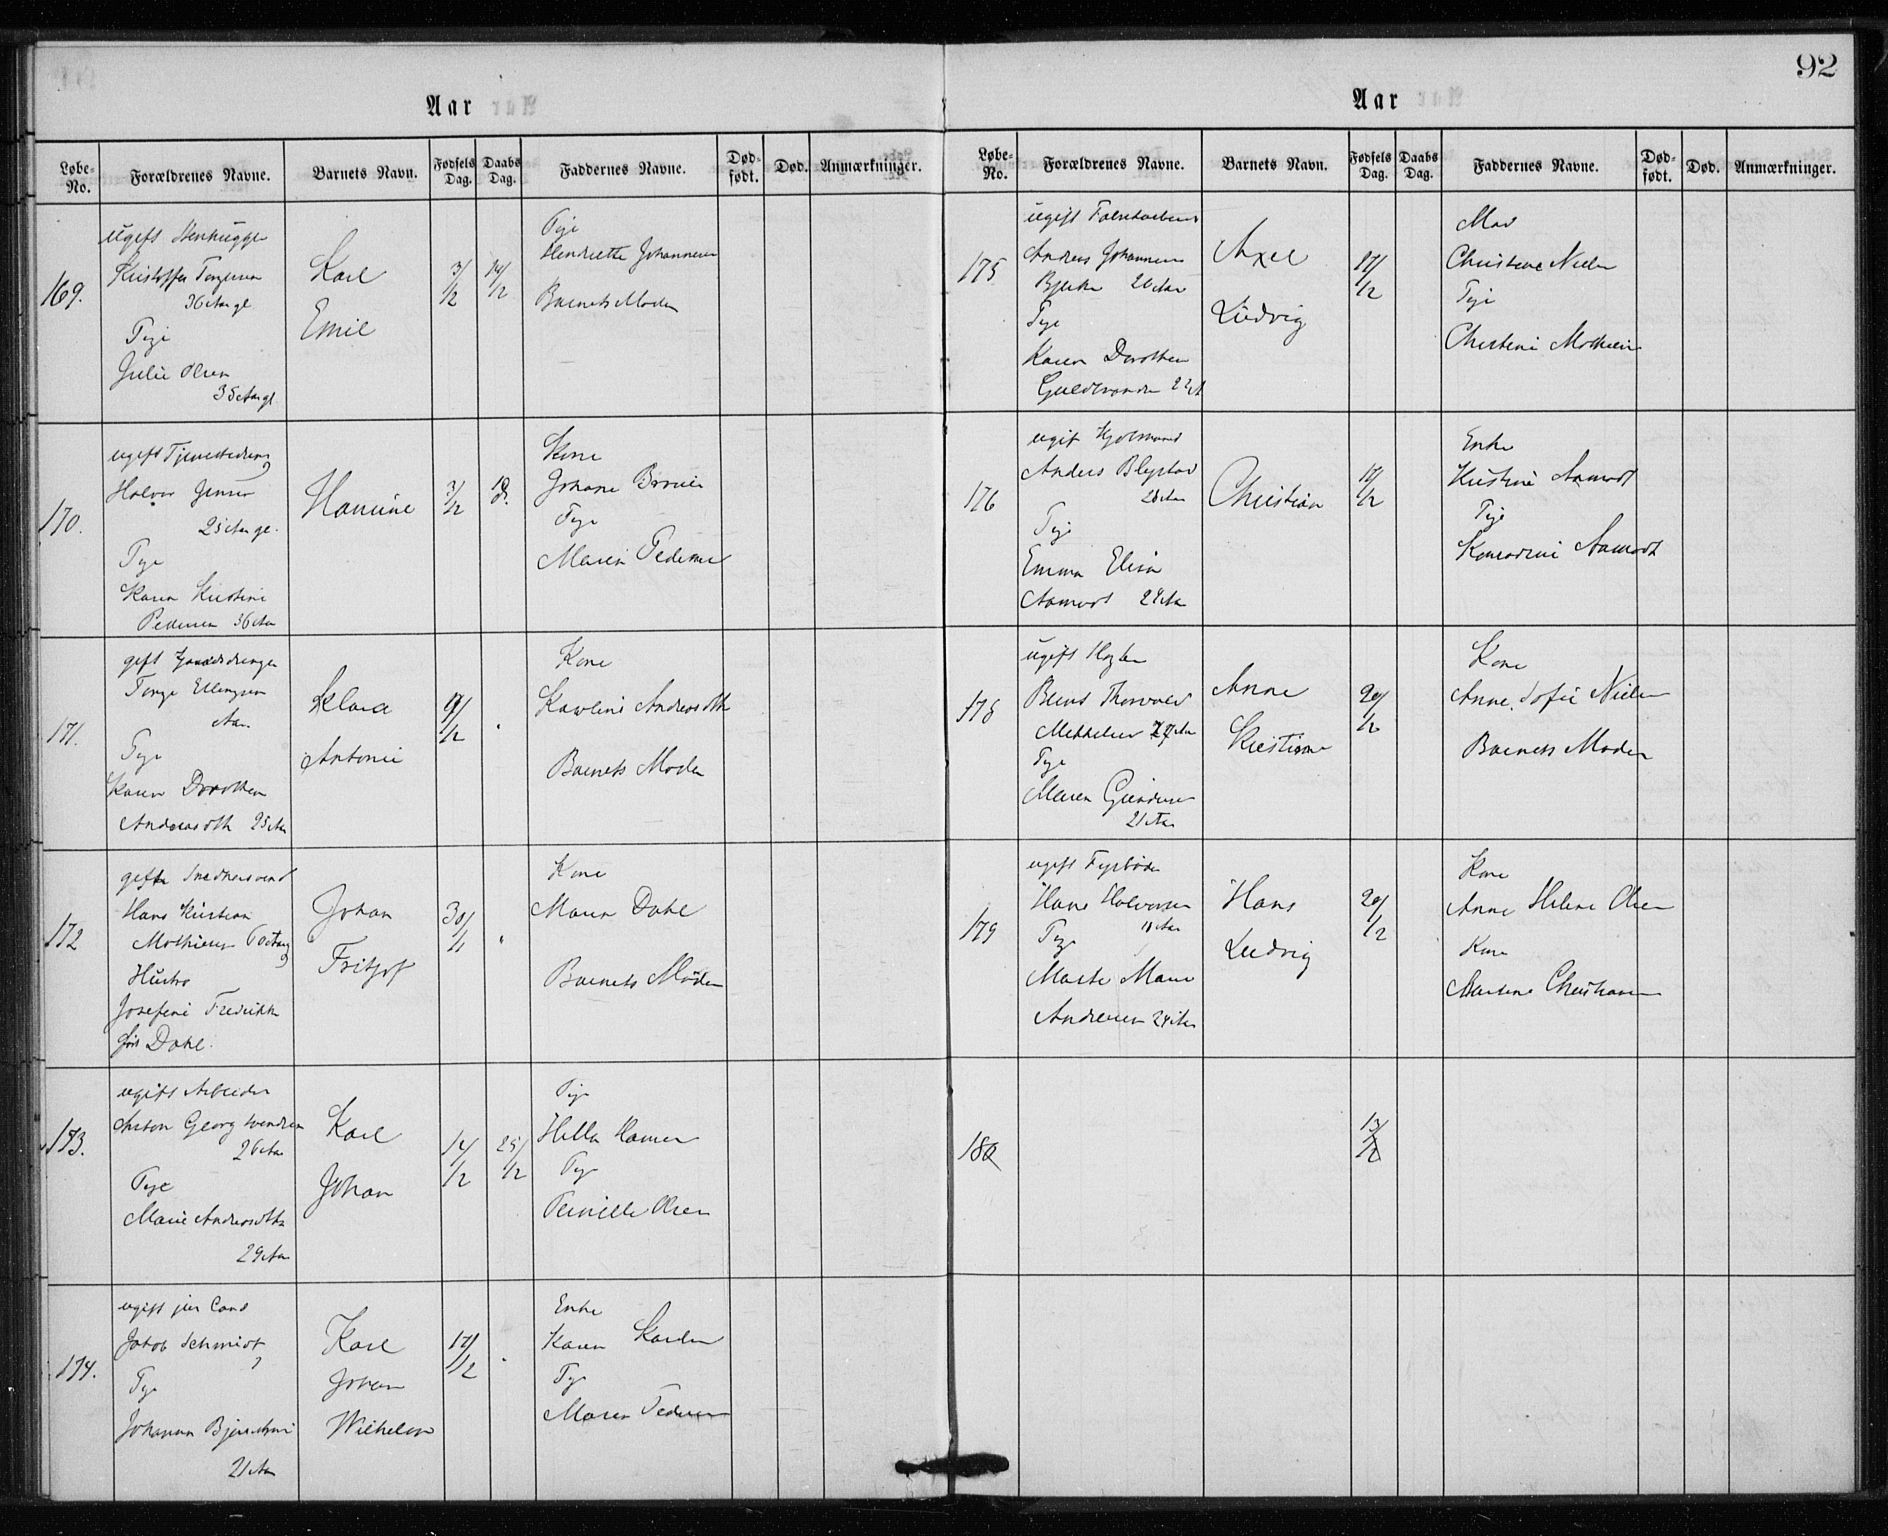 92
Aar
Løbe-No. Forældrenes Navne. Barnets Navn. Fødsels Dag. Daabs Dag. Faddernes Navne. Død-født. Død. Anmærkninger.
169.
ugift Stenhugger
Kristoffer Torgersen
36 Aar gl
Pige
Julie Olsen
35 Aar gl.
Karl
Emil
3/12
14/12
Pige
Henriette Johannesen
Barnets Moder
170.
ugift Tjenestedreng
Halvor Jensen
25 Aar gl.
Pige
Karen Kristine
Pedersen 36 Aar
Hanine
7/12
Kone
Johane
Pige
Maren Pedersen
171.
gift Gaardsdrenge
Torge Ellingsen
Aar
Pige
Karen Dorothea
Andreasdtr 25 Aar
Klara
Antonie
9/12
"
Kone
Karoline Andreasdtr
Barnets Moder
172
gift Snedkersvend
Hans Kristian
Mathisen
Hustro
Josefine Fredrikke
født Dahl.
Johan
Fritjof
30/11
"
Kone
Maren Dahl
Barnets Moder
173.
ugift Arbeider
Anton Georg Svendsen
26 Aar
Pige
Marie Andreasdtr
29 Aar
Karl
Johan
14/12
25/12
Pige
Hilda Hansen
Pige
Pernille Olsen
174.
ugift jur Cand
Jakob Schmidt
Pige
Johanna
21 Aar
Karl
Johan
Wilhelm
17/12
"
Enke
Karen
Pige
Maren Pedersen
Aar
Løbe-No. Forældrenes Navne. Barnets Navn. Fødsels Dag. Daabs Dag. Faddernes Navne. Død-født. Død. Anmærkninger.
175
ugift
Andreas Johannesen
Bjerke 26 Aar
Pige
Karen Dorothea
Guldbrandsen 22 A
Axel
Ludvig
17/12
Mad
Christine Nielsen
Pige
Christine Mathisen
176
ugift
Anders Blystad
28 Aar
Pige
Emma Elisa
Aamodt 24 Aar
Christian
Enke
Kristine Aamodt
Pige
Konradine Aamodt
178
ugift
Bernt Thorvald
Mikkelsen Aar
Pige
Maren Gundersen
21 Aar
Anne
Kristiane
20/12
Kone
Anne Sofie Nielsen
Barnets Moder
179
ugift Fyrbøder
Hans Halvorsen
Aar
Pige
Marte Marie
Andresen 24 Aar
Hans
Ludvig
20/12
Kone
Anne Helene Olsen
Kone
Martine Christiansen
180
13/12